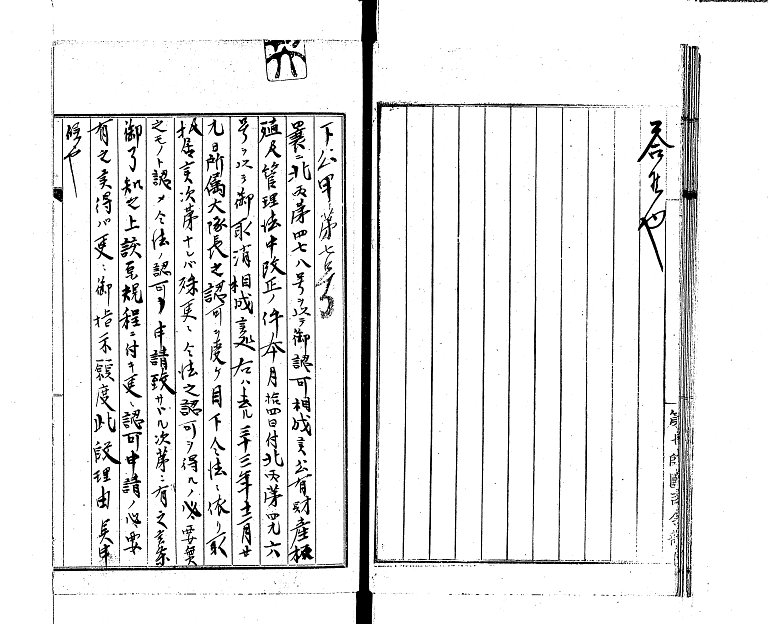 答候也
第七師團司令部
下公甲第七号
曩ニ北丙第四七八号ヲ以テ御認可相成候公有財産極
殖及管理法中改正ノ件本月拾四日付北丙第四九六
号ヲ以テ御取消相成候処右ハ去ル三十三年十二月廿
九日所属大隊長之認可ヲ受ケ目下全法ニ依リ取
扱居候次第ナレハ殊更ニ全法之認可ヲ得ルノ必要無
之モノト認メ全法ノ認可ヲ申請致サヾル次第ニ有之候条
御了知之上該規程ニ付キ更ニ認可申請ノ必要
有之候得ハ更ニ御指示願度此段理由具申
候也